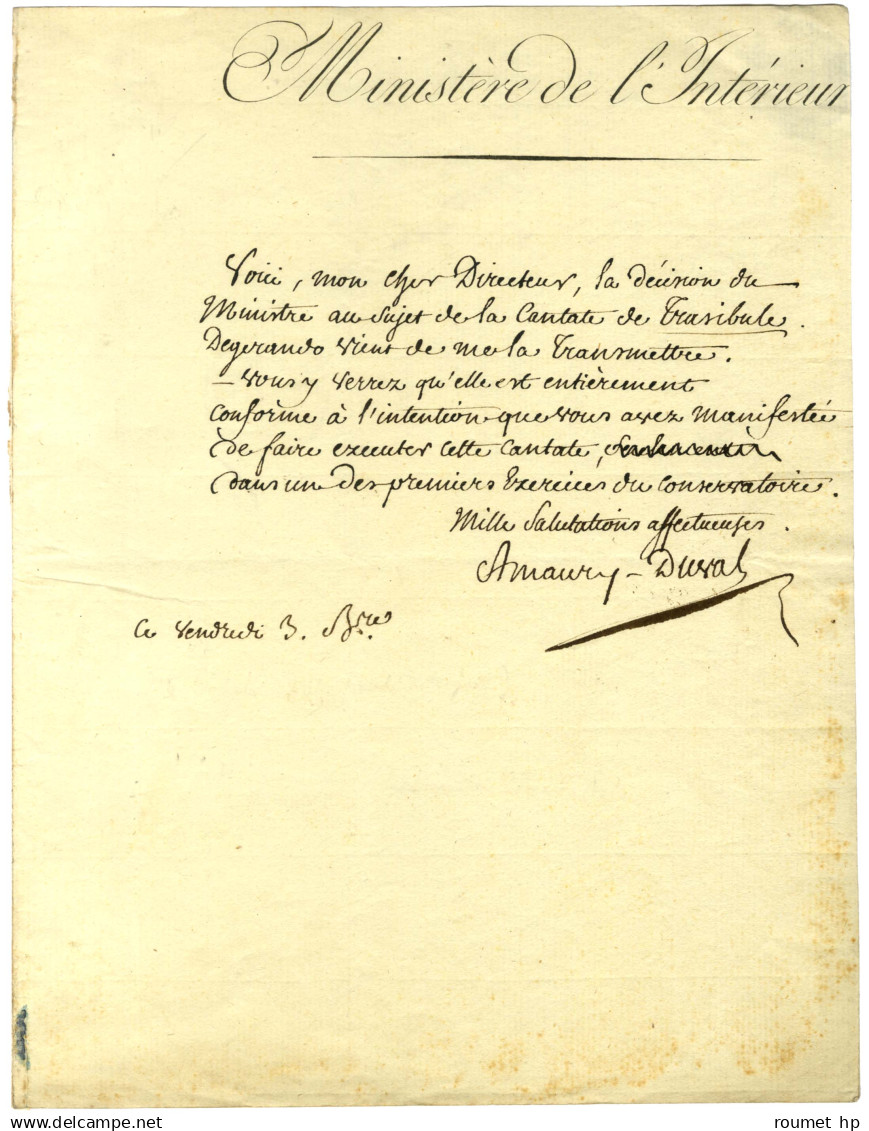 Ministère de l'Intérieur
Voici, mon cher Directeur, la décision du
Ministre au sujet de la Cantate de Trasibule.
Degerando vient de me la transmettre.
— vous y verrez qu'elle est entièrement
conforme à l'intention que vous avez manifestée
de faire executer cette cantate,
dans un des premiers Exercices du Conservatoire.
Mille Salutations affectueuses.
Amaury-Duval
Ce vendredi 3.
roumet hp